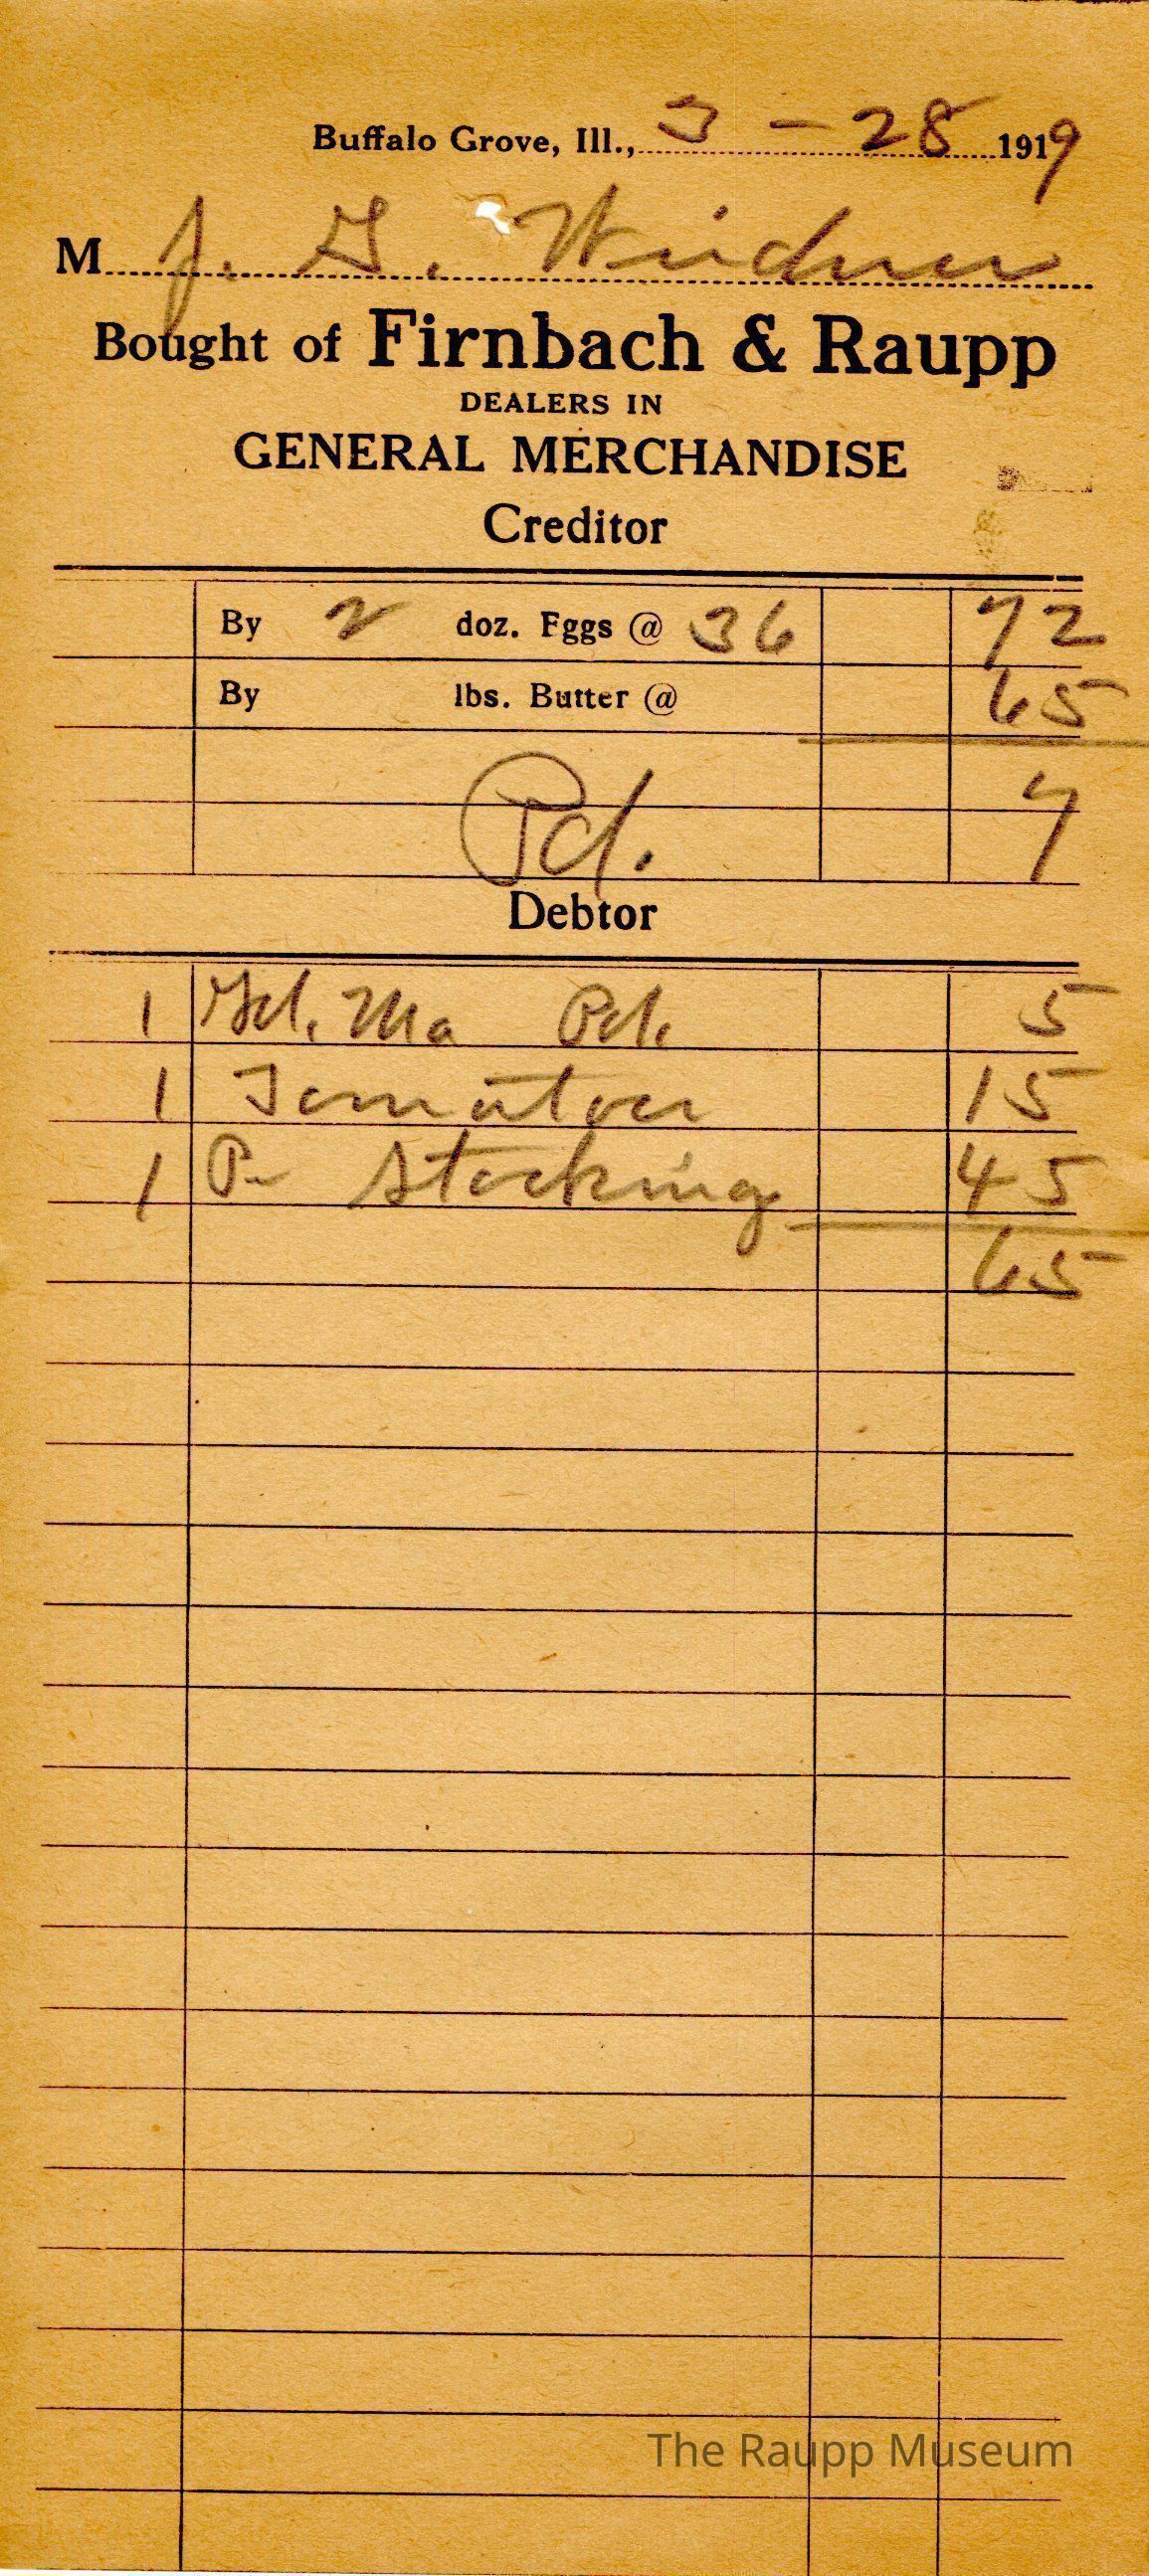 Buffalo Grove, Ill., 3 - 28 1919
M J. G. Weidner
Bought of Firnbach & Raupp
DEALERS IN
GENERAL MERCHANDISE
Creditor
By 2 doz. Eggs @ 36 72
By lbs. Butter @ 65
7
Pd.
Debtor
1 Pck. 5
1 Tomatoes 15
1 Pr Stocking 45
65
The Raupp Museum